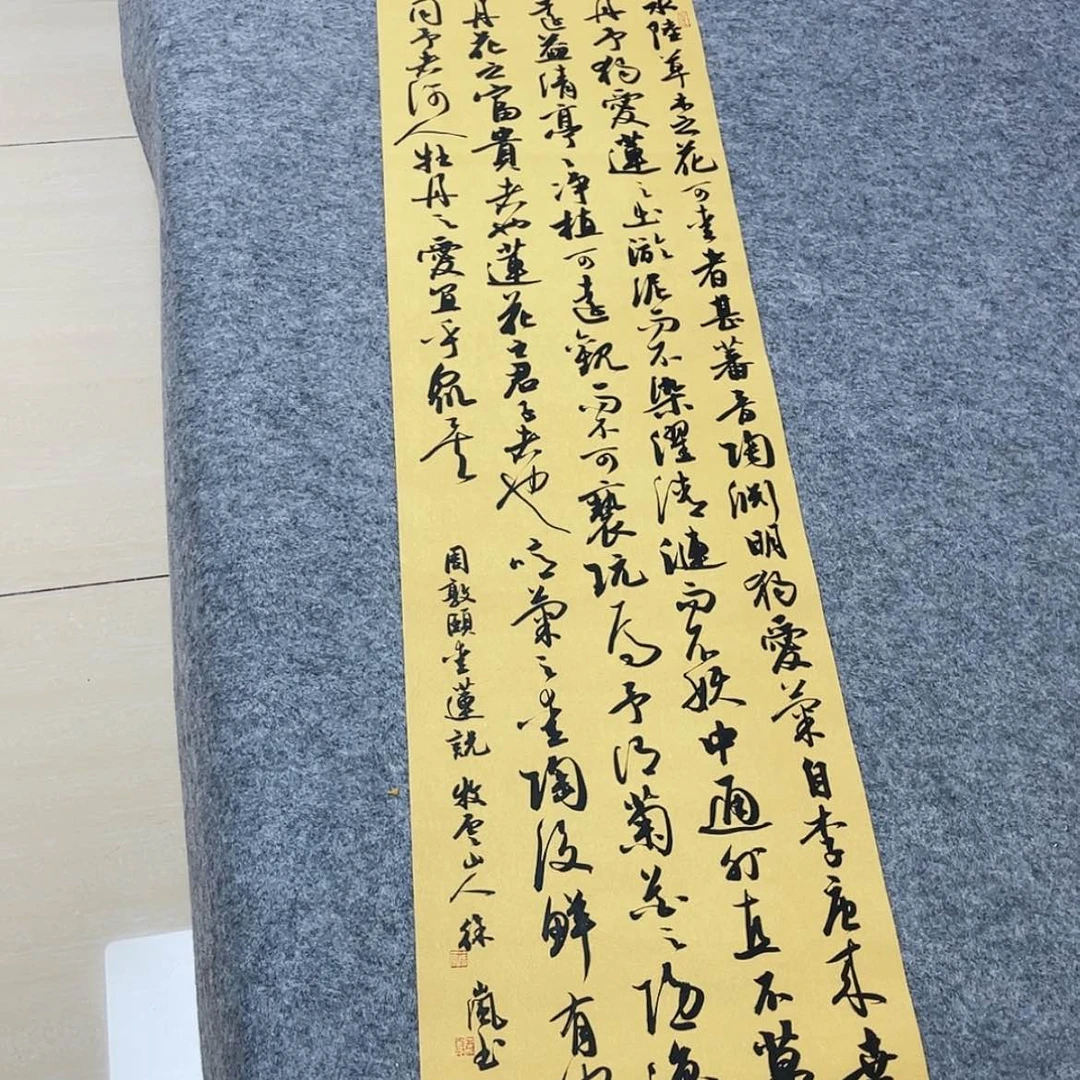 水陸草木之花可愛者甚蕃晉陶淵明獨愛菊自李唐來世
丹予獨愛蓮之出淤泥而不染濯清漣而不妖中通外直不蔓
遠益清亭亭淨植可遠觀而不可褻玩焉予謂菊花之隐逸
丹花之富貴者也蓮花之君子者也噫菊之愛陶後鮮有
同予者何人牡丹之愛宜乎眾矣
周敦頤愛蓮說 牧雲山人 徐嵐书